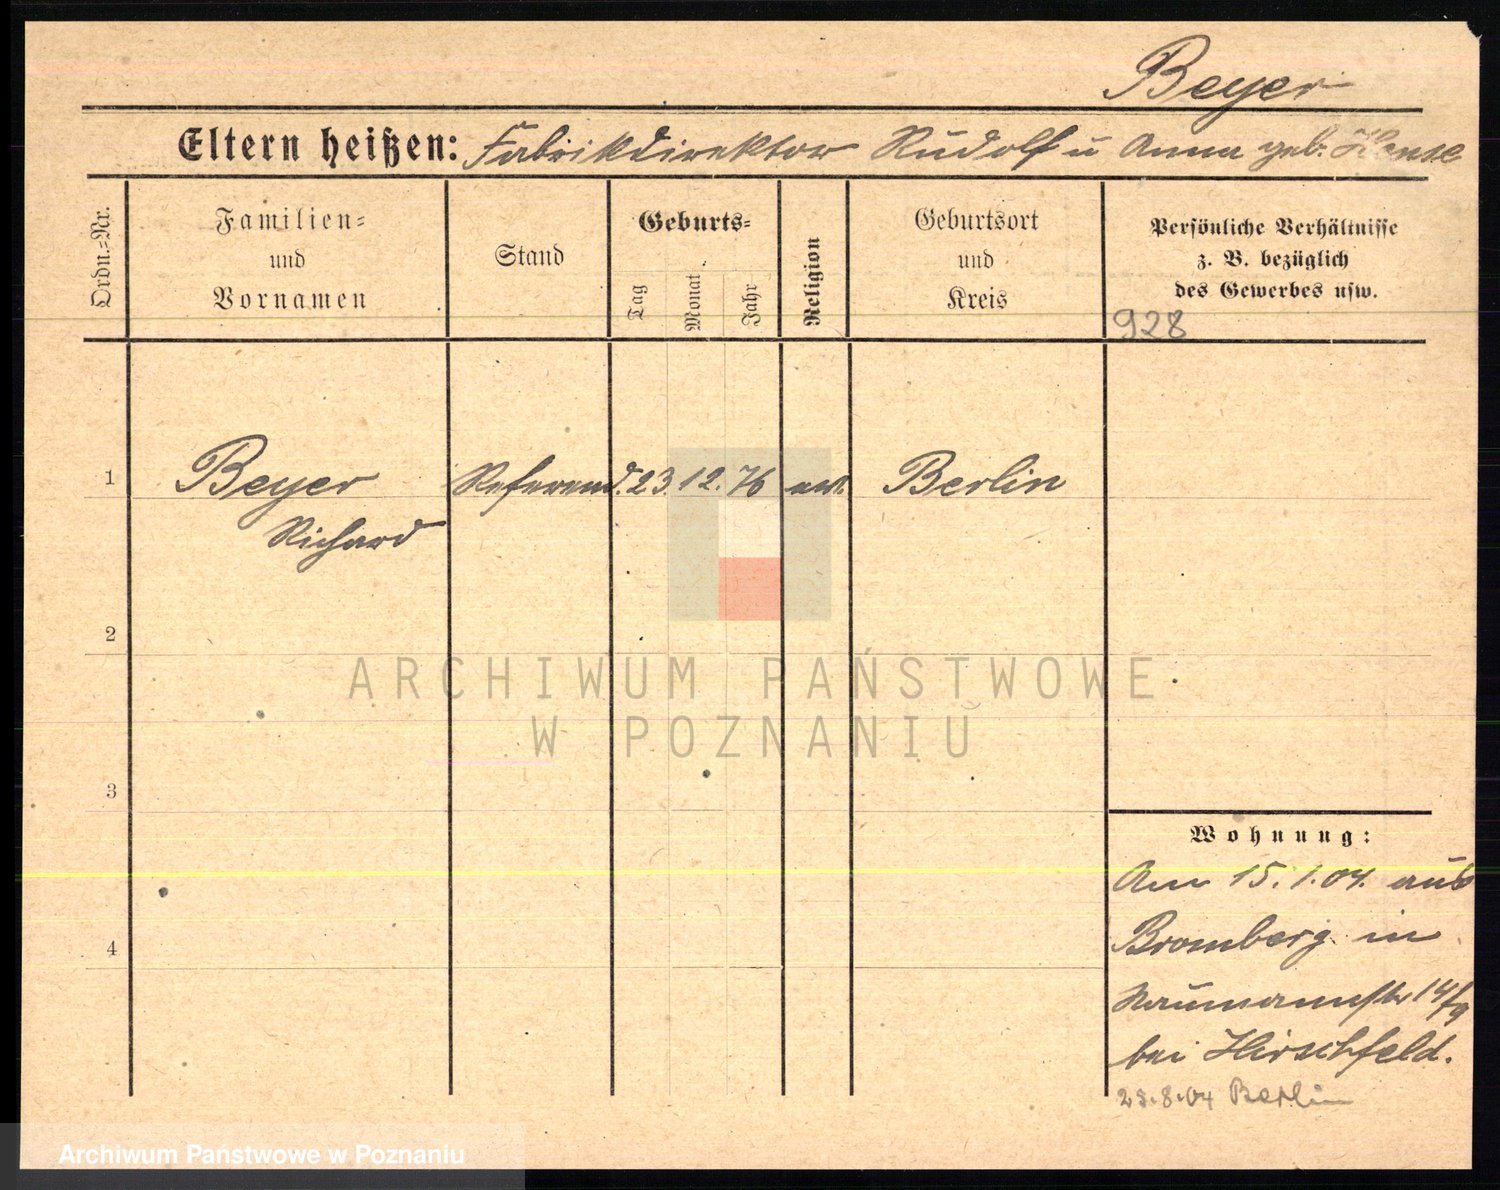 Beyer
Eltern heißen: Fabrikdirektor Rudolf u Anna geb.
Ordn.-Nr.
Familien-
und
Vornamen
Stand
Geburts-
Tag
Monat
Jahr
Religion
Geburtsort
und
Kreis
Persönliche Verhältnisse
z. B. bezüglich
des Gewerbes usw.
928
1
Beyer
Richard
Referend.
23.
12.
76
ev.
Berlin
2
3
4
Wohnung:
Am 15.1.04. aus
Bromberg in
Naumannstr 14/9
bei Hirschfeld.
23.8.04 Berlin
ARCHIWUM PAŃSTWOWE
W POZNANIU
Archiwum Państwowe w Poznaniu